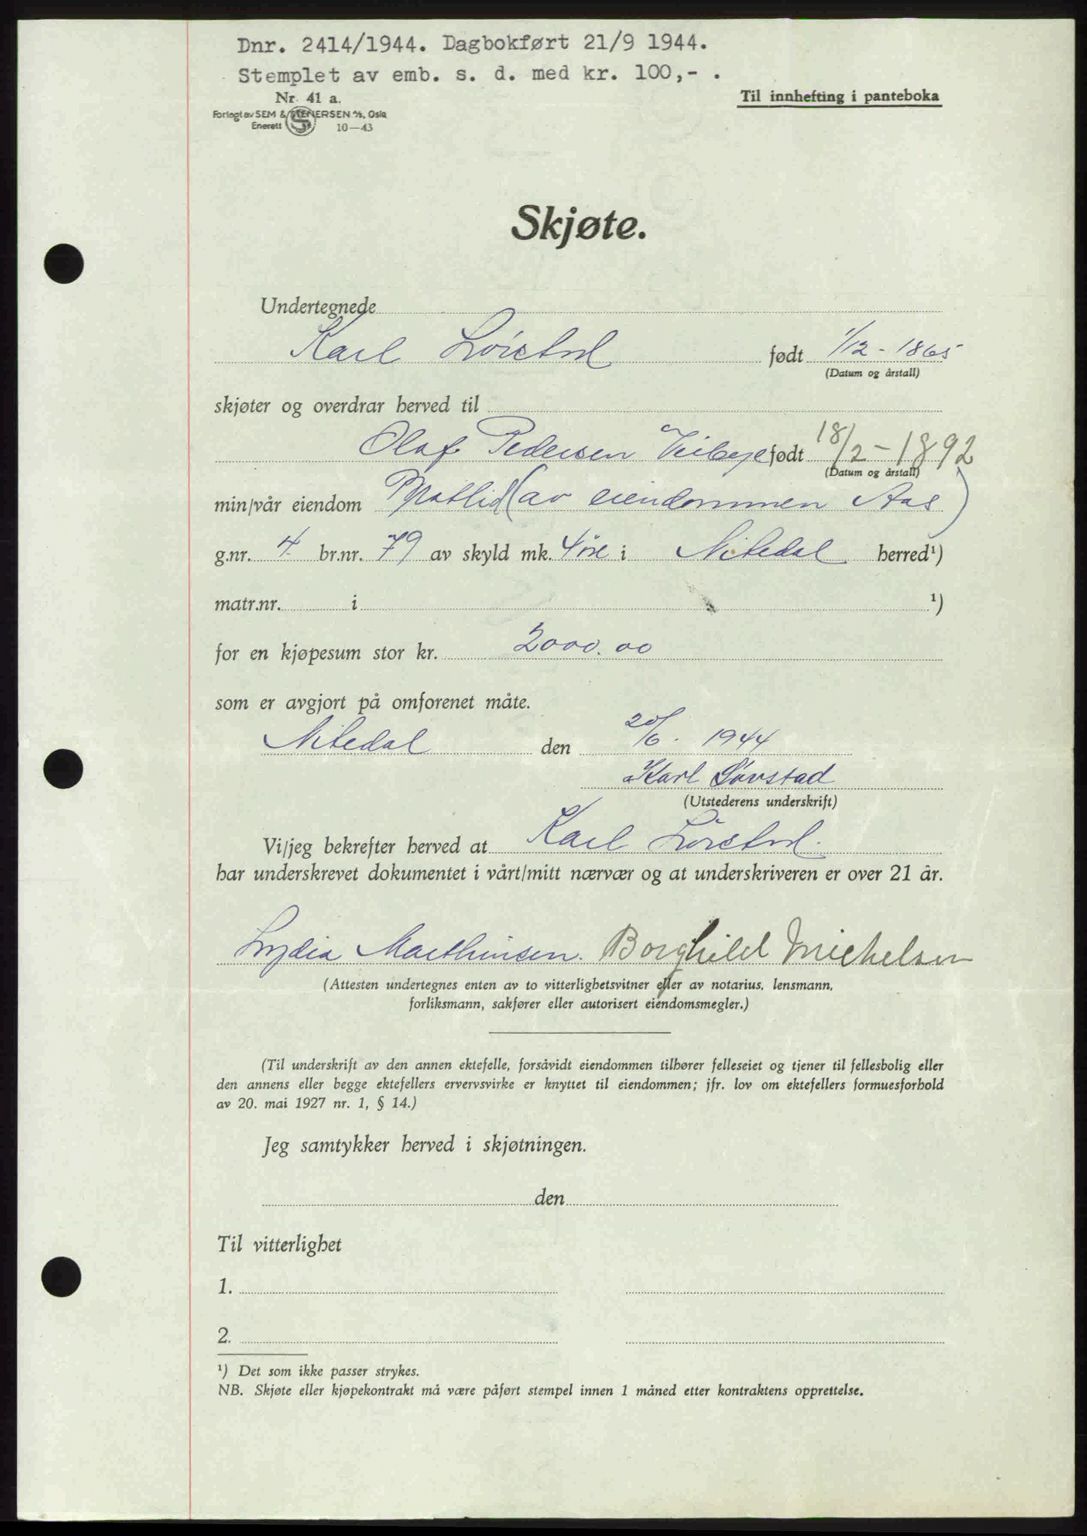 Dnr. 2414/1944. Dagbokført 21/9 1944.
Stemplet av emb. s. d. med kr. 100,- .
Nr. 41 a.
Til innhefting i panteboka
Forlagt av SEM & STENERSEN A/S, Oslo
Enerett 10—43
Skjøte.
Undertegnede
Karl Løvstad født 1/12 - 1865
(Datum og årstall)
skjøter og overdrar herved til
Olaf Pedersen født 18/2 - 1892
(Datum og årstall)
min/vår eiendom (av eiendommen Aas)
g.nr. 4 br.nr. 79 av skyld mk. 4 øre i Nitedal herred¹)
matr.nr. i ¹)
for en kjøpesum stor kr. 2000.00
som er avgjort på omforenet måte.
Nitedal den 20/6 - 1944
Karl Løvstad
(Utstederens underskrift)
Vi/jeg bekrefter herved at Karl Løvstad.
har underskrevet dokumentet i vårt/mitt nærvær og at underskriveren er over 21 år.
Lydia Marthinsen. Borghild Michelsen
(Attesten undertegnes enten av to vitterlighetsvitner eller av notarius, lensmann,
forliksmann, sakfører eller autorisert eiendomsmegler.)
(Til underskrift av den annen ektefelle, forsåvidt eiendommen tilhører felleseiet og tjener til fellesbolig eller
den annens eller begge ektefellers ervervsvirke er knyttet til eiendommen; jfr. lov om ektefellers formuesforhold
av 20. mai 1927 nr. 1, § 14.)
Jeg samtykker herved i skjøtningen.
den
Til vitterlighet
1.
2.
¹) Det som ikke passer strykes.
NB. Skjøte eller kjøpekontrakt må være påført stempel innen 1 måned etter kontraktens opprettelse.